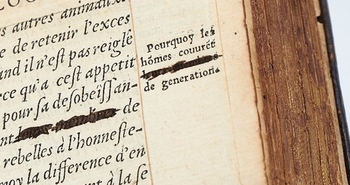 us autres animaux
de retenir l'exces
and il n'est pas reiglé
rce qu'a cest appetit
pour sa desobeissan-
nt de
rebelles à l'honneste-
oy la difference d'en
ant à la se
Pourquoy les
hõmes couurẽt
de generation.